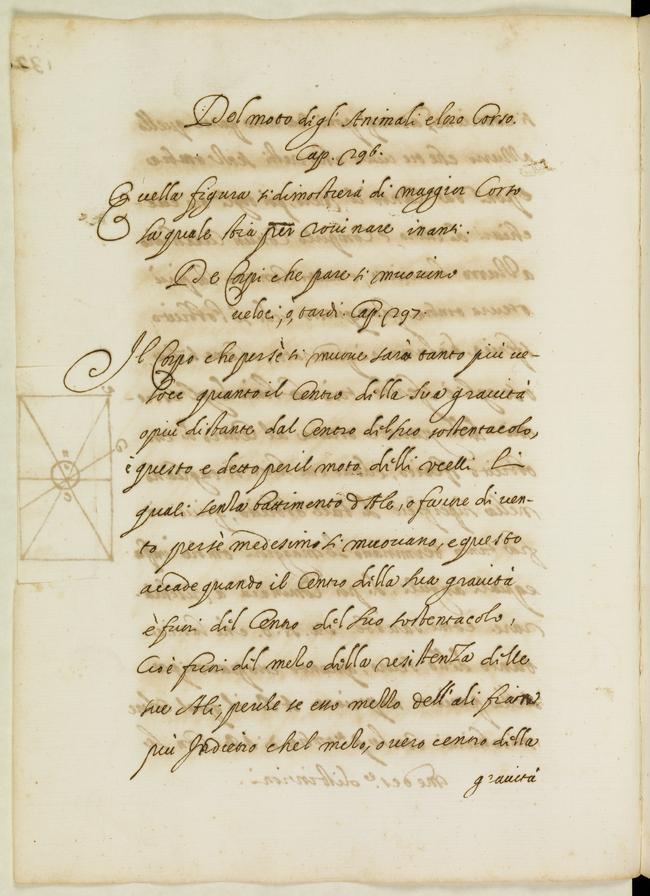 Del moto digl' Animali eloro Corso.
Cap. 296.
Quella figura si dimostrerà di maggior Corso
la quale stra per rovinare inanti.
De Corpi che per se ti muovino
veloci, o, tardi. Cap. 297.
Il Corpo che persè si muove sarà tanto più ve-
loce quanto il Centro della sua gravità
o più distante dal Centro del suo sostentacolo,
è questo e detto per il moto delli vcelli Li
quali senza battimento d'Ale, o favore di ven-
to persè medesimo si muovano, e questo
accade quando il Centro della sua gravità
è fuori del Centro del suo sostentacolo,
Cioè fuori del mezo della resistenza delle
sue Ali, perche se esso mezzo dell'ali fiano
più Indietro chel mezo, overo centro della
gravità